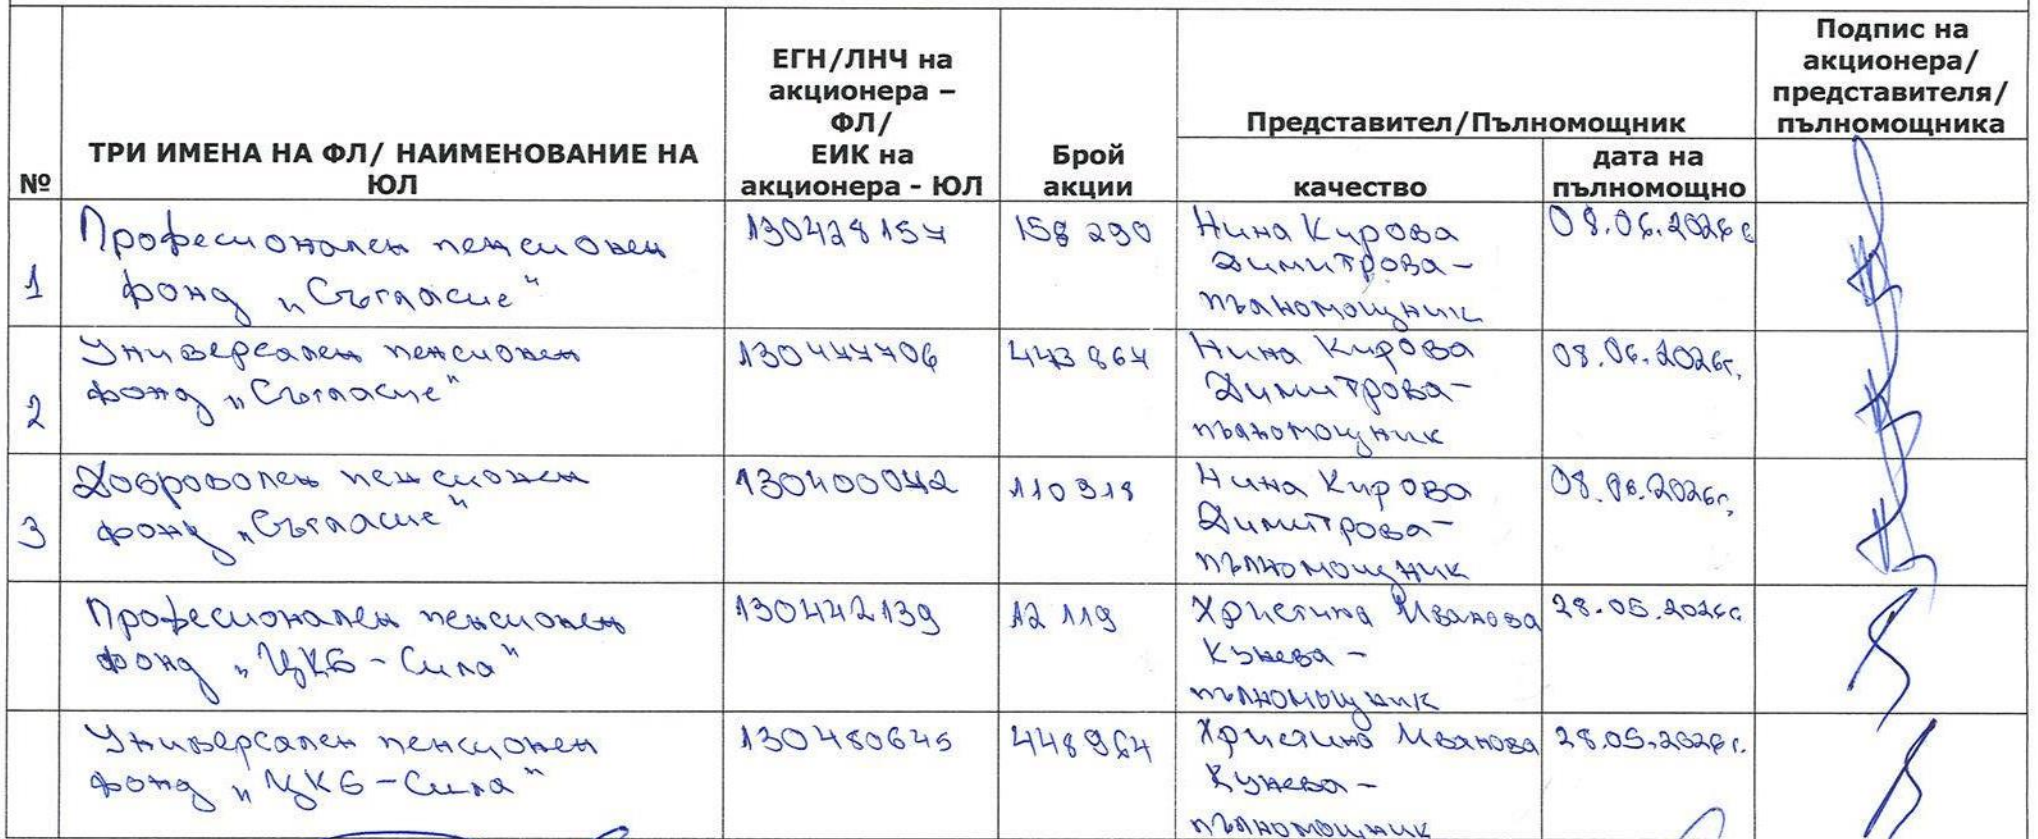 №
ТРИ ИМЕНА НА ФЛ/ НАИМЕНОВАНИЕ НА
ЮЛ
ЕГН/ЛНЧ на
акционера –
ФЛ/
ЕИК на
акционера - ЮЛ
Брой
акции
Представител/Пълномощник
качество
дата на
пълномощно
Подпис на
акционера/
представителя/
пълномощника
1
Професионален пенсионен
фонд „Съгласие"
130428157
158 290
Нина Кирова
Димитрова-
пълномощник
08.06.2026г
2
Универсален пенсионен
фонд „Съгласие"
130477706
473 867
Нина Кирова
Димитрова-
пълномощник
08.06.2026г.
3
Доброволен пенсионен
фонд „Съгласие"
130400042
110 318
Нина Кирова
Димитрова-
пълномощник
08.06.2026г.
Професионален пенсионен
фонд „ЦКБ - Сила"
130442139
12 119
Христина Иванова
Кунева -
пълномощник
28.05.2026г.
Универсален пенсионен
фонд „ЦКБ - Сила"
130480645
448 964
Христина Иванова
Кунева-
пълномощник
28.05.2026г.